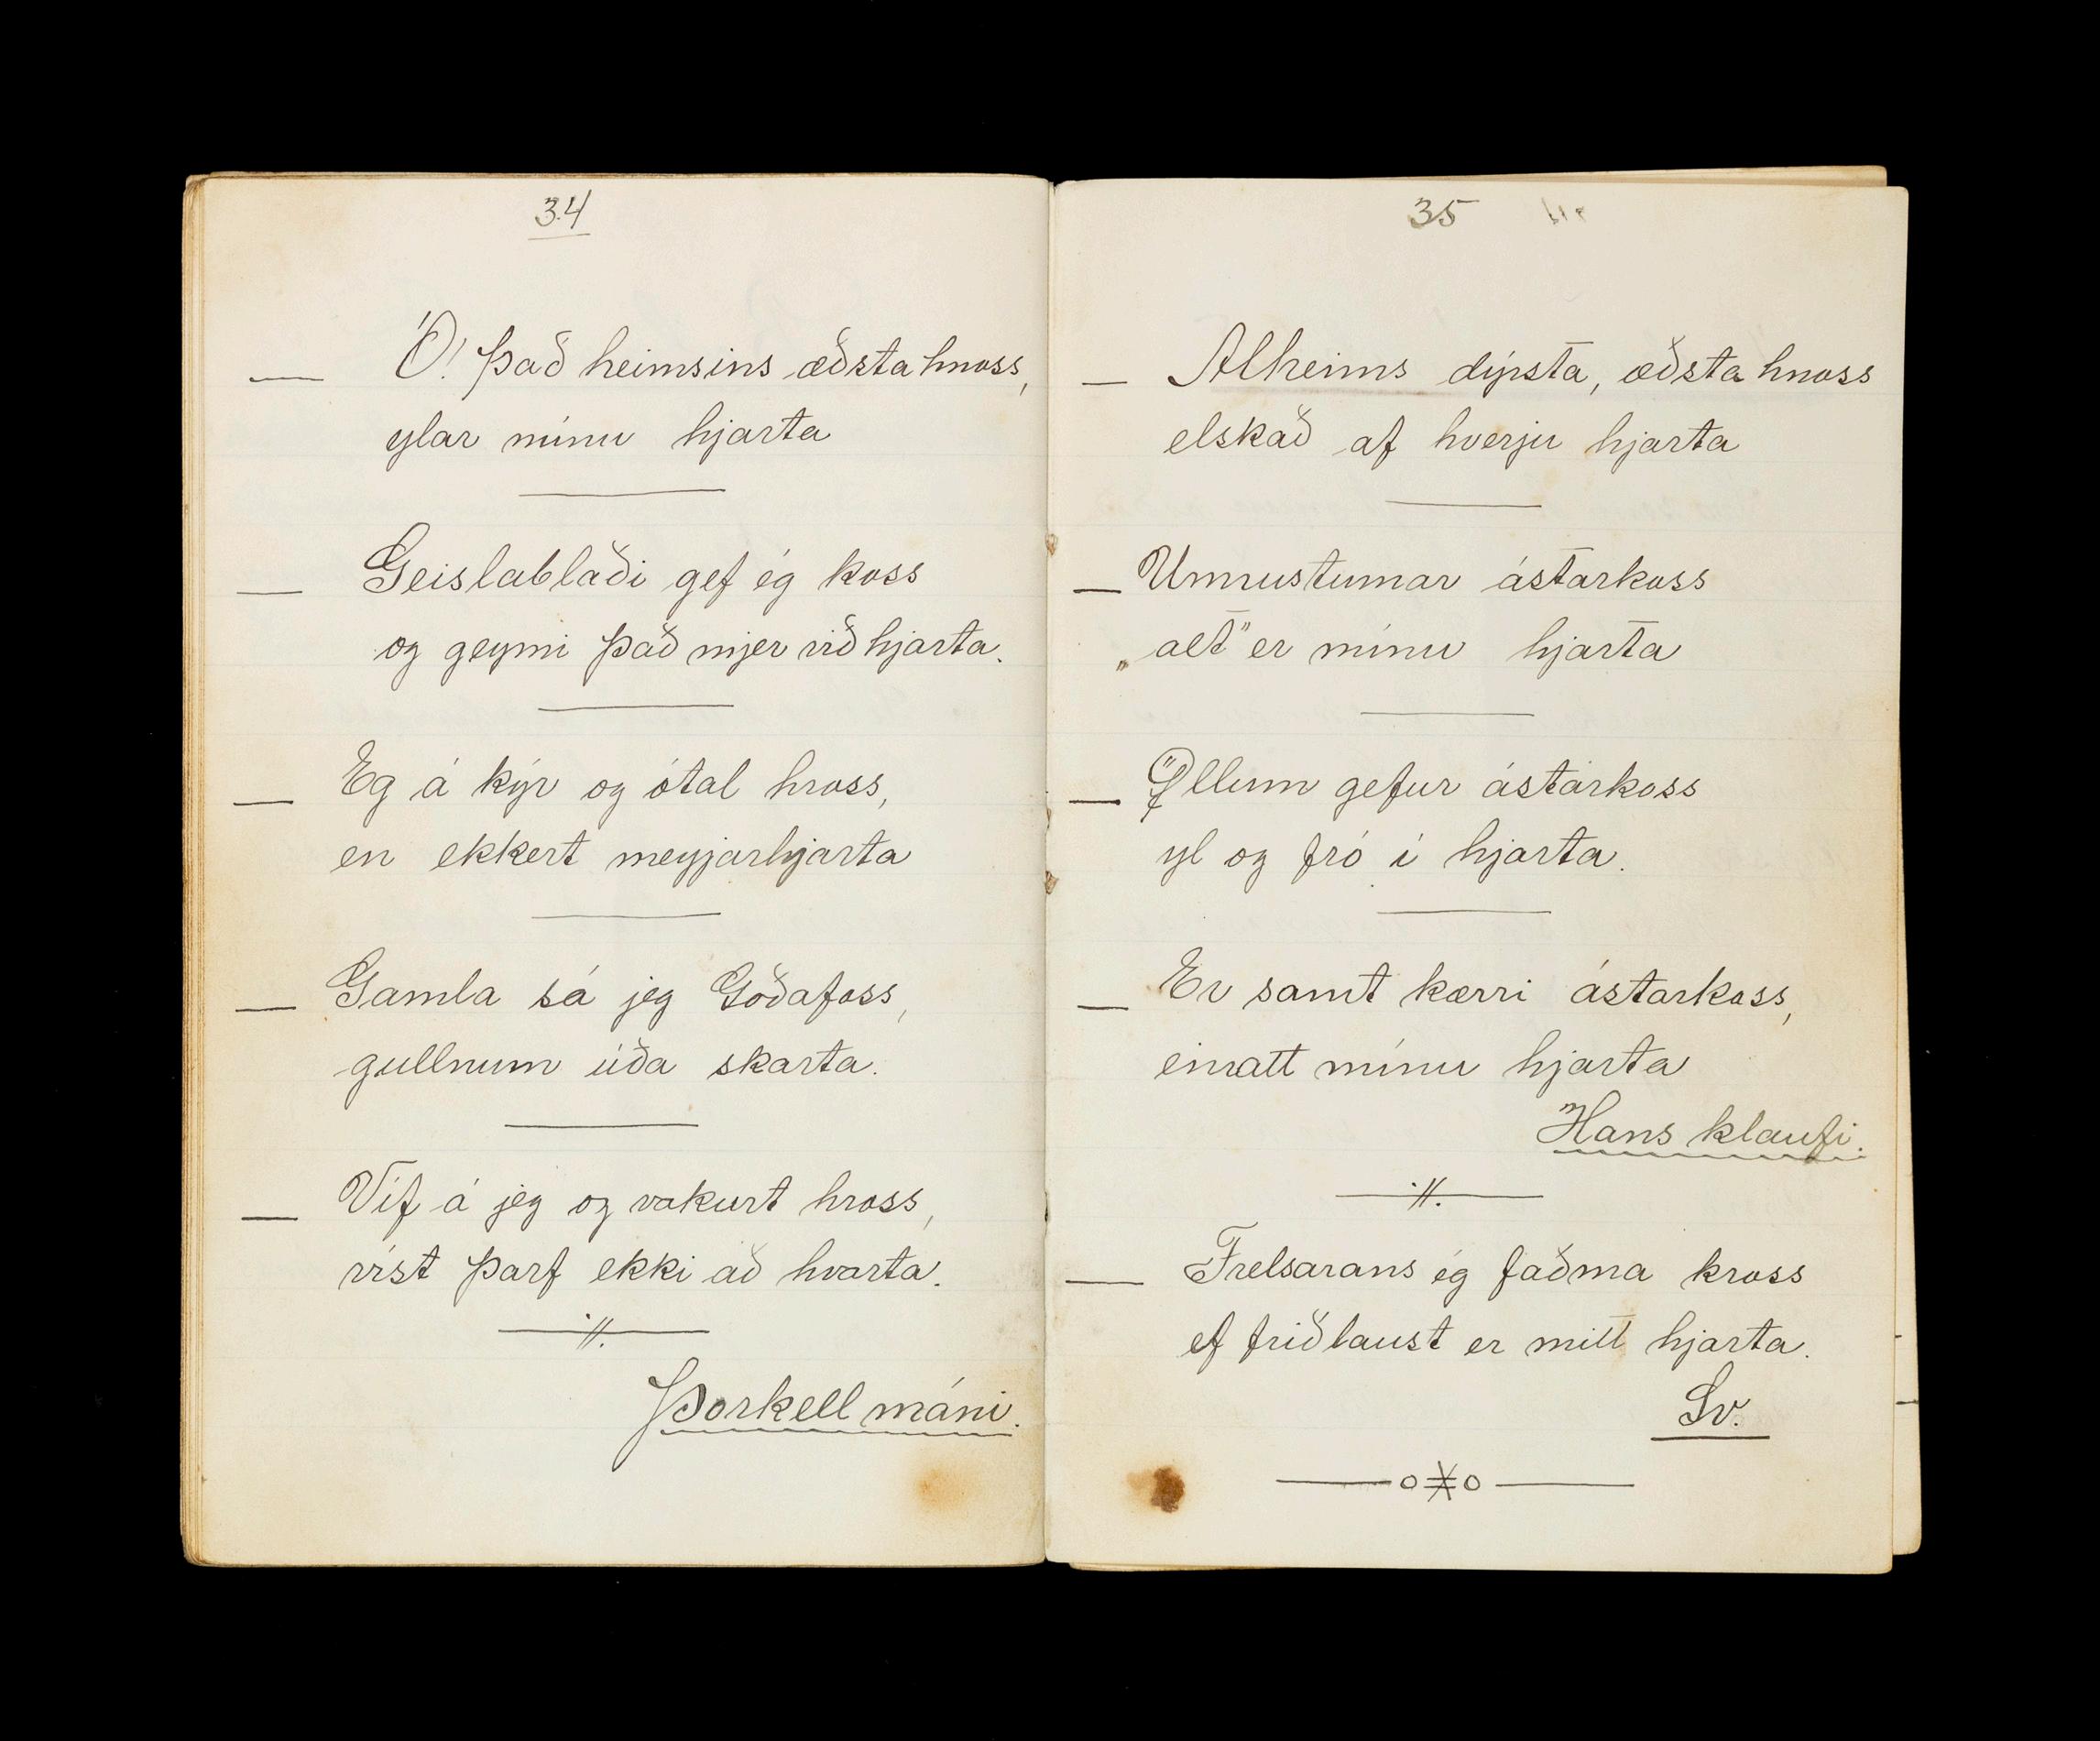 34
— Ó! það heimsins æðsta hnoss,
ylar mínu hjarta
— Geislablaði gef ég koss
og geymi það mjer við hjarta.
— Eg á kýr og ótal hross,
en ekkert meyjarhjarta
— Gamla sá jeg Góðafoss,
gullnum úða skarta.
— Víf á jeg og vakurt hross,
víst þarf ekki að kvarta.
Þorkell máni.
35
— Alheims dýpsta, æðsta hnoss
elskað af hverju hjarta
— Unnustunnar ástarkoss
„alt" er mínu hjarta
— Öllum gefur ástarkoss
yl og fró í hjarta.
— Er samt kærri ástarkoss,
einatt mínu hjarta
Hans klaufi.
— Frelsarans ég faðma kross
ef friðlaust er mitt hjarta.
Sv.